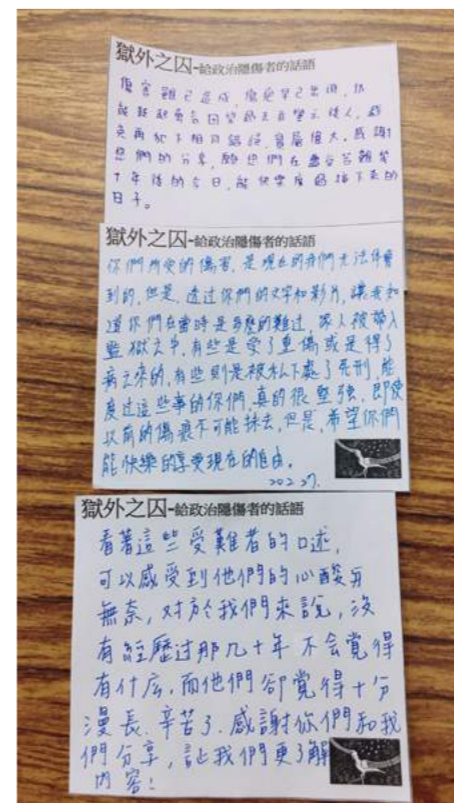 獄外之囚-給政治隱傷者的話語
傷害雖已造成,傷疤早已出現,仍
能鼓起勇氣回望過去且警示後人,避
免再犯下相同錯誤,實屬偉大。感謝
您們的分享,願您們在歷台苦難幾
十年後的今日,能快樂度過接下來的
日子。
獄外之囚-給政治隱傷者的話語
你們所受的傷害,是現在的我們无法体會
到的,但是,透过你們的文字和影片,讓我知
道你們在當時是多麼的難过,家人被帶入
監獄之中,有些是受了重傷或是得了
病之來的,有些則是被私下處了死刑,能
度过這些事的你們,真的很堅強,即使
以前的傷痕不可能抹去,但是,希望你們
能快樂的享受現在的自由。
獄外之囚-給政治隱傷者的話語
看著這些受難者的口述,
可以感受到他們的心酸與
無奈,对於我們來說,沒
有經歷过那几十年不会覺得
有什广,而他們卻覺得十分
漫長.辛苦了.感謝你們和我
們分享,讓我們更了解
内容!